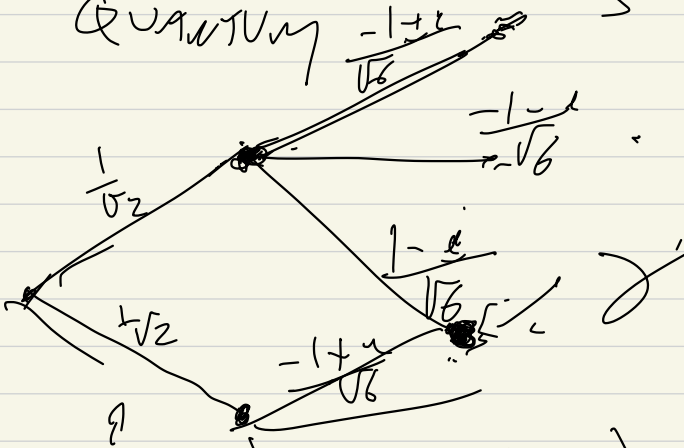 QUANTUM
-1+i/√6
-1-i/√6
1/√2
1-i/√6
1/√2
-1+i/√6